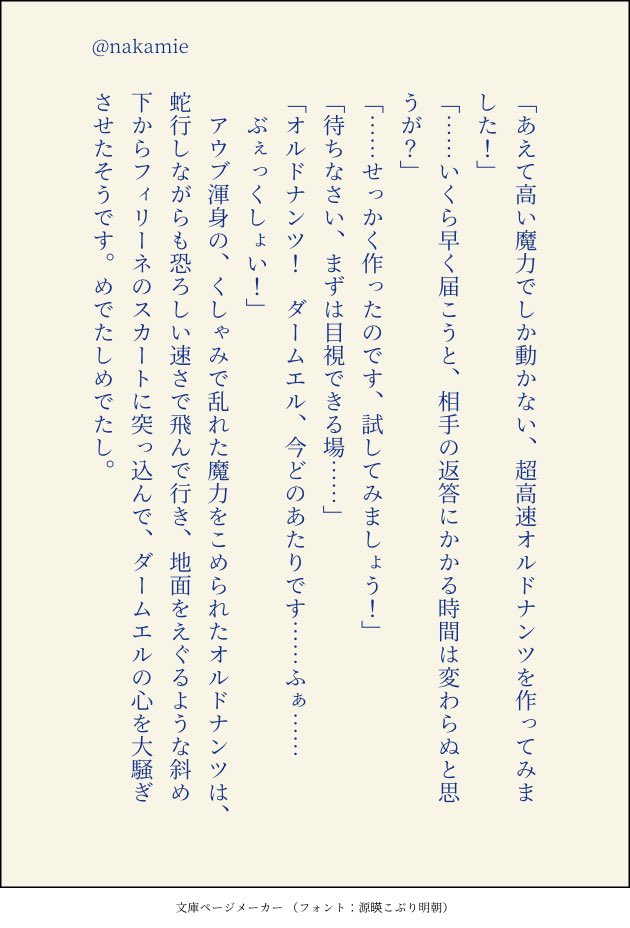 @nakamie
「あえて高い魔力でしか動かない、超高速オルドナンツを作ってみま
した！」
「……いくら早く届こうと、相手の返答にかかる時間は変わらぬと思
うが？」
「……せっかく作ったのです、試してみましょう！」
「待ちなさい、まずは目視できる場……」
「オルドナンツ！　ダームエル、今どのあたりです……ふぁ……
ぶぇっくしょい！」
　アウブ渾身の、くしゃみで乱れた魔力をこめられたオルドナンツは、
蛇行しながらも恐ろしい速さで飛んで行き、地面をえぐるような斜め
下からフィリーネのスカートに突っ込んで、ダームエルの心を大騒ぎ
させたそうです。めでたしめでたし。
文庫ページメーカー （フォント：源暎こぶり明朝）